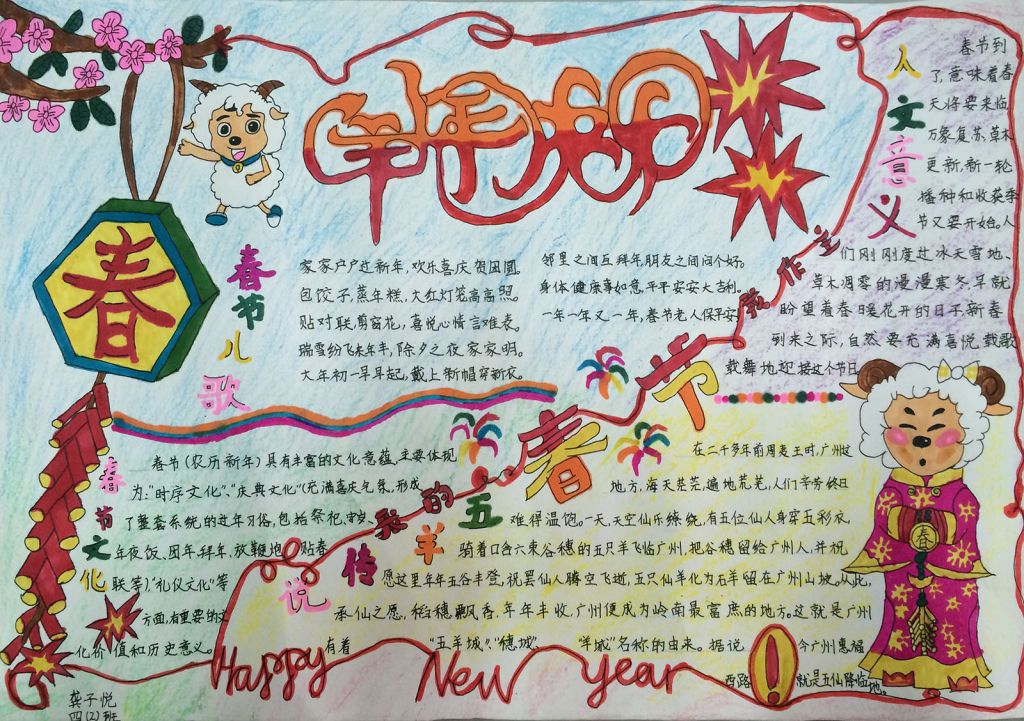 羊年快乐
春
春节儿歌
家家户户过新年,欢乐喜庆贺团圆。
包饺子,蒸年糕,大红灯笼高高照。
贴对联,剪窗花,喜悦心情言难表。
瑞雪纷飞来年丰,除夕之夜家家明。
大年初一早早起,戴上新帽穿新衣。
邻里之间互拜年,朋友之间问个好。
身体健康事如意,平平安安大吉利。
一年一年又一年,春节老人保平安。
人文意义
春节到
了,意味着春
天将要来临,
万象复苏草木
更新,新一轮
播种和收获季
节又要开始。人
们刚刚度过冰天雪地、
草木凋零的漫漫寒冬早就
盼望着春暖花开的日子,新春
到来之际,自然要充满喜悦载歌
载舞地迎接这个节日
春节
春节文化
春节(农历新年)具有丰富的文化意蕴,主要体现
为:"时序文化"、"庆典文化"(充满喜庆气氛,形成
了整套系统的过年习俗,包括祭祀、守岁、
年夜饭、团年、拜年、放鞭炮、贴春
联等)、"礼仪文化"等
方面,有重要的文
化价值和历史意义。
五羊的传说
在二千多年前周夷王时,广州这
地方,海天茫茫,遍地荒芜,人们辛劳终日
难得温饱。一天,天空仙乐缭绕,有五位仙人身穿五彩衣,
骑着口含六束谷穗的五只羊飞临广州,把谷穗留给广州人,并祝
愿这里年年五谷丰登,祝罢仙人腾空飞逝,五只仙羊化为石羊留在广州山坡。从此,
承仙之愿,稻穗飘香,年年丰收,广州便成为岭南最富庶的地方。这就是广州
有着"五羊城"、"穗城"、"羊城"名称的由来。据说今广州惠福
西路就是五仙降临地。
春
Happy New year!
龚子悦
四(2)班